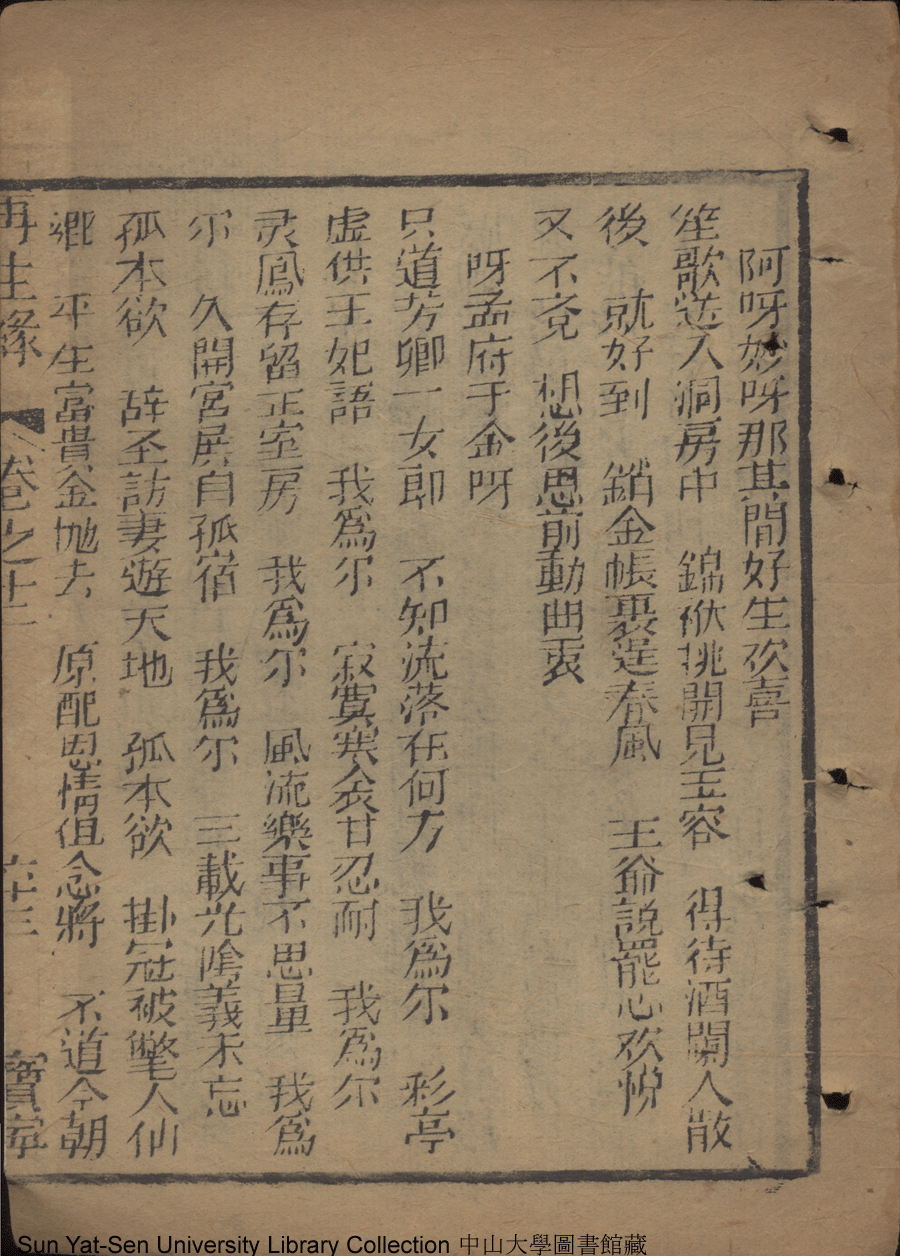 阿呀妙呀那其間好生欢喜
笙歌送入洞房中　錦袱挑開見玉容　得待酒闌人散
後　就好到　銷金帳裹逞春風　王爺說罷心欢悅
又不竞　想後思前動曲衷
呀孟府千金呀
只道芳卿一女郎　不知流落在何方　我爲尔　彩亭
虛供王妃語　我爲尔　寂寞寒衾甘忍耐　我爲尔
灵鳳存留正室房　我爲尔　風流樂事不思量　我爲
尔　久開宮居自孤宿　我爲尔　三載光陰義未忘
孤本欲　辞圣訪妻遊天地　孤本欲　掛冠被氅人仙
鄉　平生富貴金抛去　原配恩情但念將　不道今朝
再生緣　卷之十二　六十三　寳寧
Sun Yat-Sen University Library Collection 中山大學圖書館藏